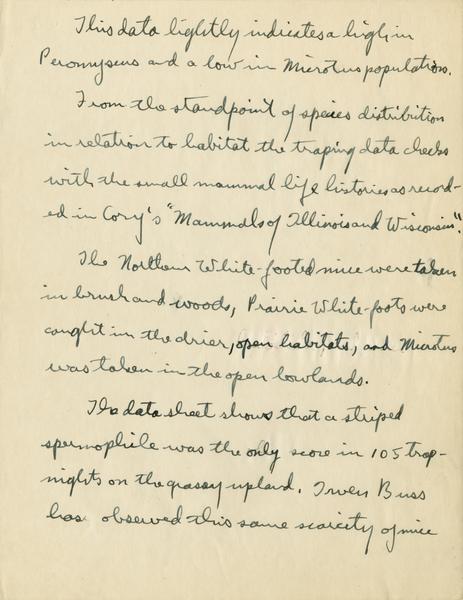 This data lightly indicates a high in
Peromyscus and a low in Microtus population.
From the standpoint of species distribution
in relation to habitat the traping data checks
with the small mammal life histories as record-
ed in Cory's "Mammals of Illinois and Wisconsin".
The Northern White-footed mice were taken
in brush and woods, Prairie White-foots were
caught in the drier, open habitats, and Microtus
was taken in the open lowlands.
The data sheet shows that a striped
spermophile was the only score in 105 trap-
nights on the grassy upland. Irven Buss
has observed this same scarcity of mice